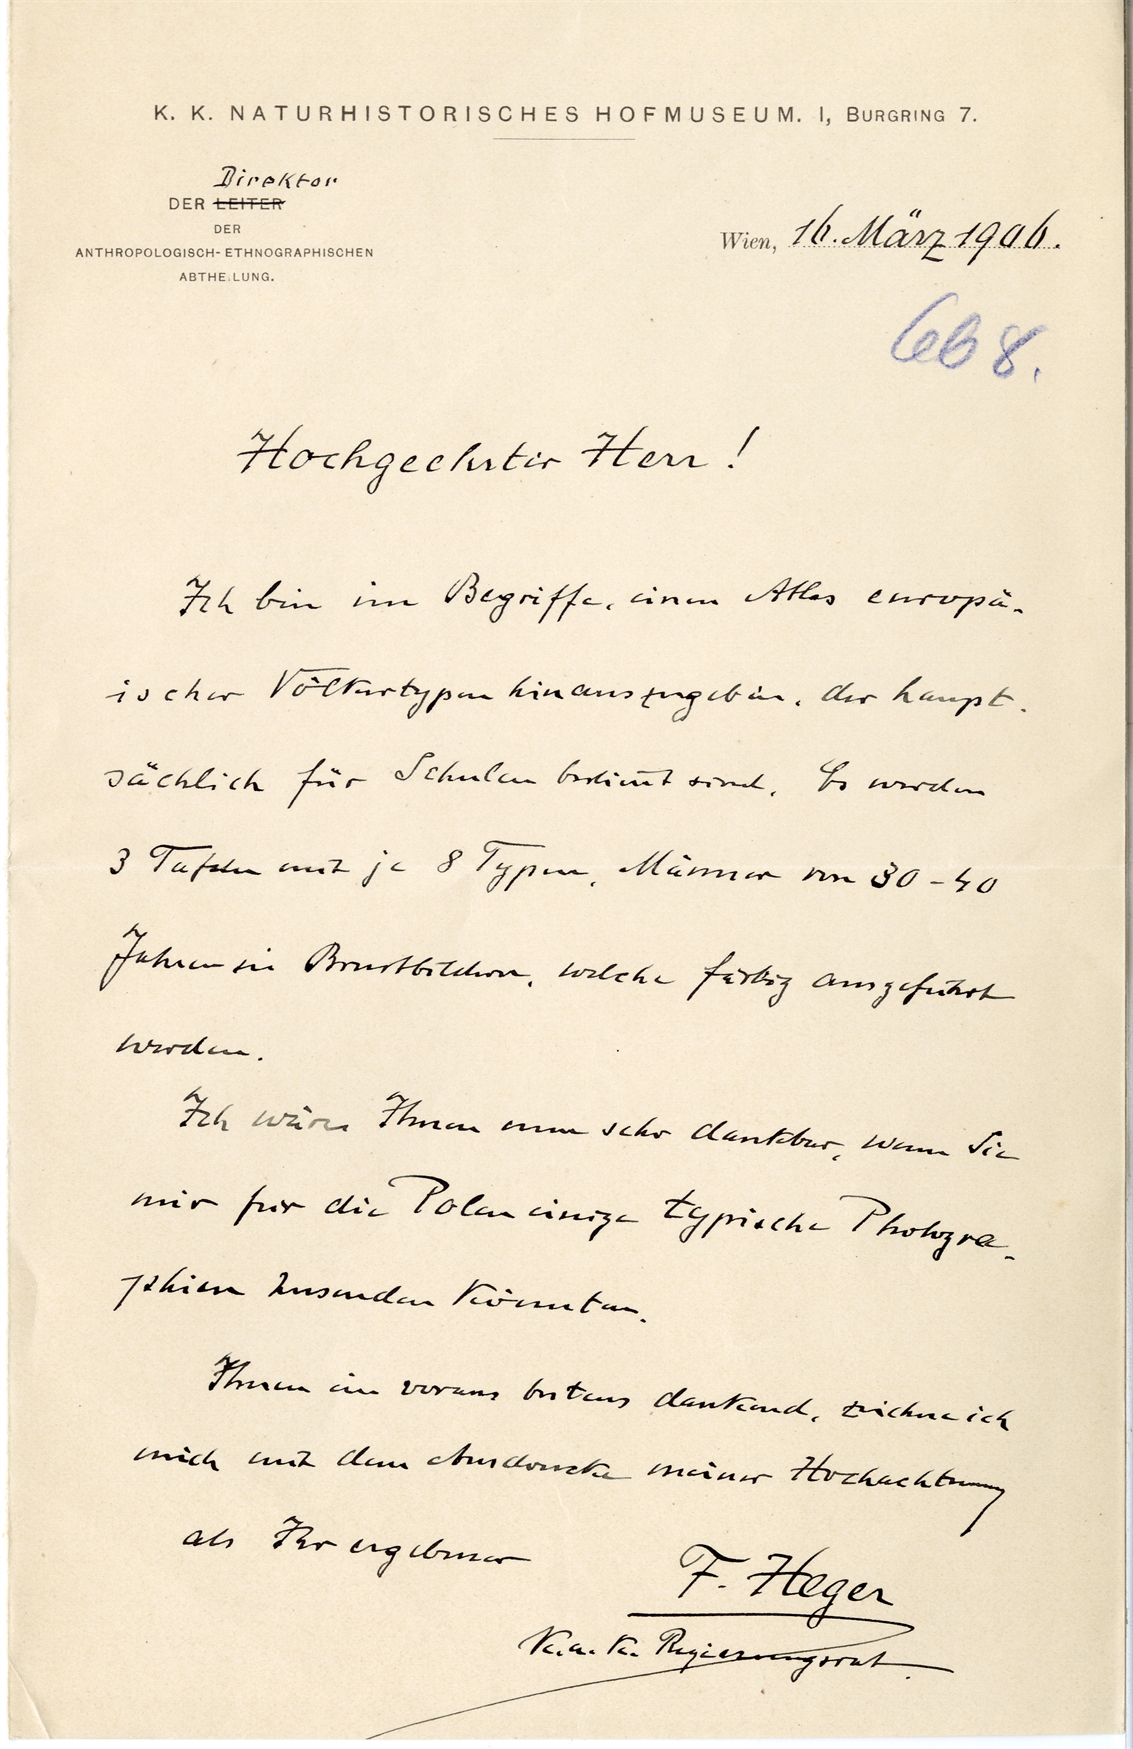 K. K. NATURHISTORISCHES HOFMUSEUM. I, BURGRING 7.
Direktor
DER LEITER
DER
ANTHROPOLOGISCH-ETHNOGRAPHISCHEN
ABTHEILUNG.
Wien, 16. März 1906.
668.
Hochgeehrter Herr!
Ich bin im Begriffe, einen Atlas europä-
ischer Völkertypen hinauszugeben, der haupt-
sächlich für Schulen bestimt sind. Es werden
3 Tafeln mit je 8 Typen, Männer von 30-40
Jahren in Brustbildern, welche färbig ausgeführt
werden.
Ich wäre Ihnen nun sehr dankbar, wenn Sie
mir für die Polen einige typische Photogra-
phien zusenden könnten.
Ihnen im voraus bestens dankend, zeichne ich
mich mit dem Ausdrucke meiner Hochachtung
als Ihr ergebener
F. Heger
K. u. K. Regierungsrat.